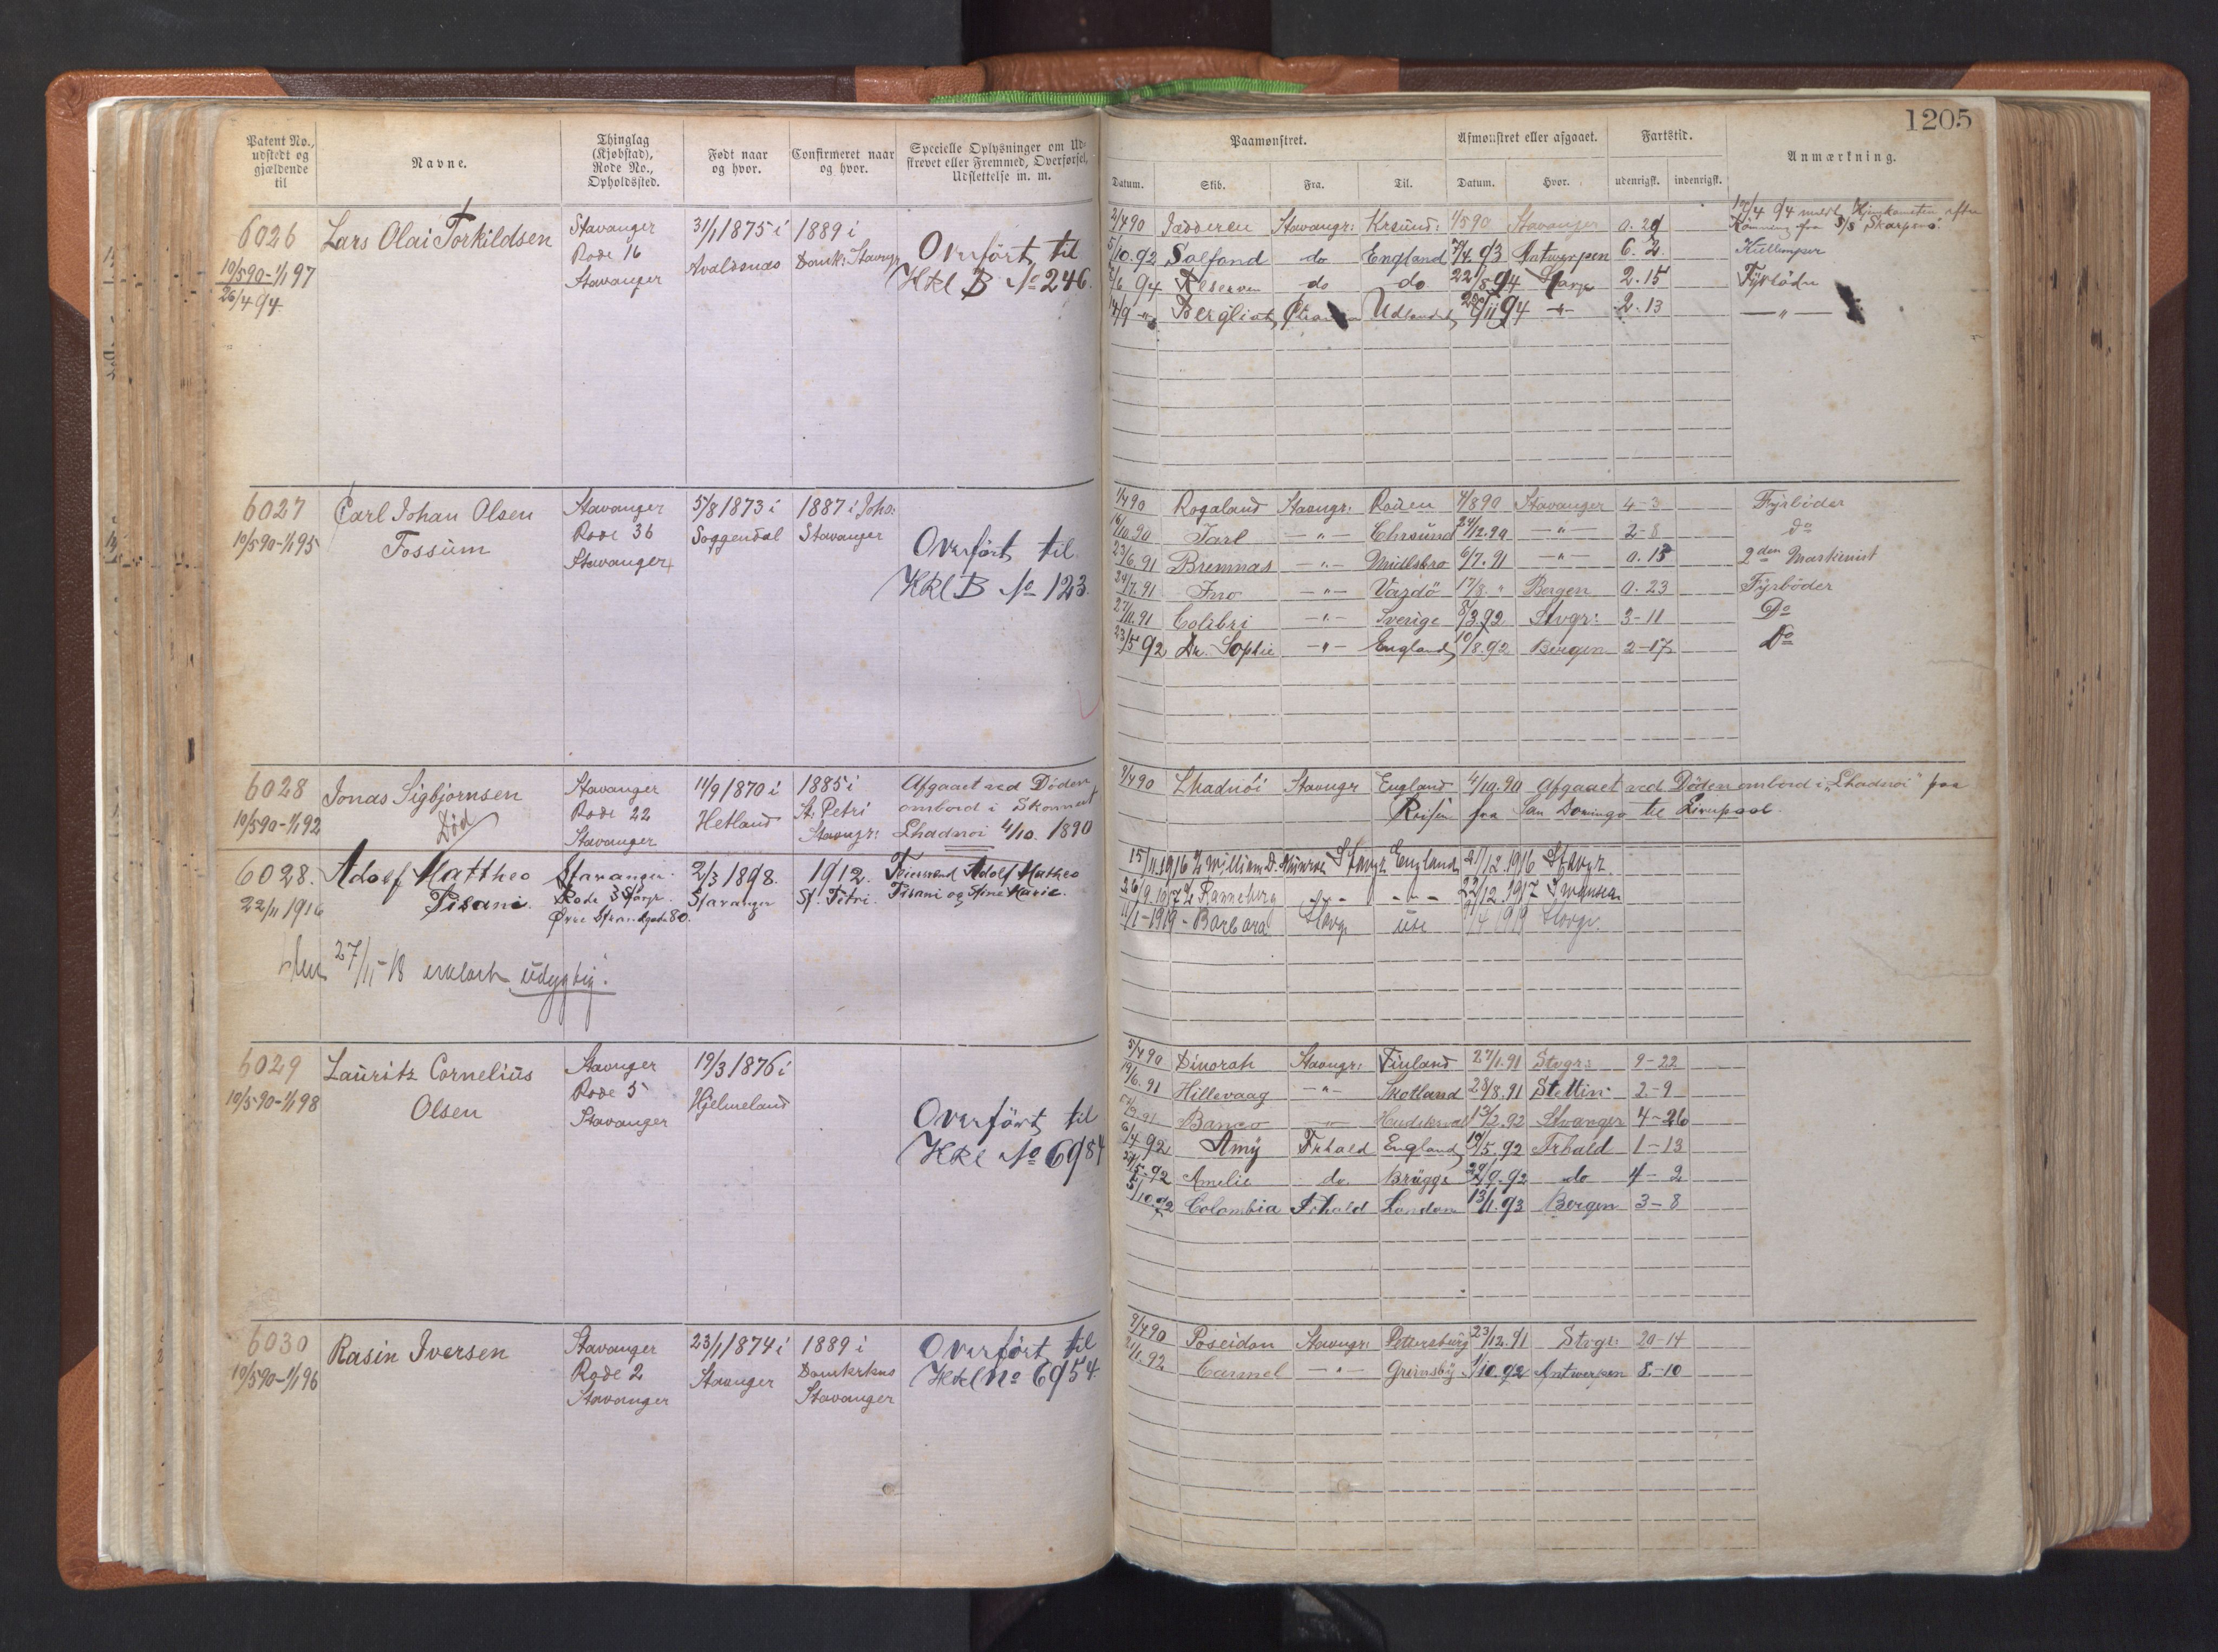 1205
Patent No., udstedt og gjældende til
Navne.
Thinglag (Kjøbstad), Rode No., Opholdssted.
Født naar og hvor.
Confirmeret naar og hvor.
Specielle Oplysninger om Udskrevet eller Fremmed, Overførsel, Udslettelse m. m.
Paamønstret.
Afmønstret eller afgaaet.
Fartstid.
Anmærkning.
Datum. Skib. Fra. Til. Datum. Hvor. udenrigsk. indenrigsk.
6026 Lars Olai Torkildsen Stavanger 31/1 1875 i 1889 i
10/5 90-1/1 97 Rode 16 Avaldsnes Domk: Stavngr
26/4 94 Stavanger
Overført til
Hkl B No 246.
2/4 90 Jædderen Stavangr: Krsund: 1/5 90 Stavanger 0.29
5/10.92 Salfond do England 7/4.93 Antwerpen 6.2
94 do do 22/8.94 2.15 Fyrbøder
Bergliot Udlandet 94 2.13 — " —
6027 Carl Johan Olsen Stavanger 5/8 1873 i 1887 i Joh:
10/5 90-1/1 95 Fossum Rode 36 Soggendal Stavanger
Stavanger
Overført til
Hkl B No 123.
1/4 90 Rogaland Stavngr: Rouen 4/8 90 Stavanger 4-3 Fyrbøder
16/10.90 Jarl — " — Chrsund 24/12.90 — " — 2-8 do
23/6.91 Bremnæs — " — 6/7.91 — " — 0.13 2den Maskinist
24/7.91 — " — 17/8. " Bergen 0.23 Fyrbøder
27/11.91 Colibri — " — Sverige 8/3.92 Stvgr: 3-11 Do
23/5 92 Dr. Sophie — " — England 10/8.92 Bergen 2-17 Do
6028 Jonas Sigbjørnsen Stavanger 11/9 1870 i 1885 i Afgaaet ved Døden
10/5 90-1/1 92 Død Rode 22 Hetland St. Petri ombord i Skonnert
Stavanger Stavngr: Lhadnoi 4/10. 1890
9/4 90 Lhadnoi Stavngr England 4/10.90 Afgaaet ved Døden ombord i "Lhadnoi" paa
Reisen fra San Domingo til Liverpool.
6028. Adolf Mattheo Stavanger. 2/3 1898. 1912. Adolf Matheo
22/11 1916 Pisani. Rode 3 Stavgr. Stavanger St. Petri. Pisani og Ane Marie.
Øvre Strandgade 80.
27/11-18 erklært udygtig.
15/11.1916 William D. Munroe Stavgr England 21/12.1916 Stavgr.
26/9.1917 Ranneborg - " - - " - 22/12.1917 Swansea
11/1-1919 - Barbara Stavg. 1919 Stavgr.
6029 Lauritz Cornelius Stavnger 19/3 1876 i
10/5 90-1/1 98 Olsen Rode 5 Hjelmeland
Stavanger
Overført til
Hkl No 6984
5/4 90 Dinorah Stavngr: Finland 27/1.91 Stvgr: 9-22
19/6.91 Hillevaag — " — Skotland 28/8.91 Stettin 2-9
Banco — " — Hudiksval 13/2.92 Stvanger 4-26
6/4 92 Amy Frhald England 19/5.92 Frhald 1-13
92 Amelie do. Brügge 29/9.92 do 4-2
5/10.92 Colombia Frhald London 13/1.93 Bergen 3-8
6030 Rasin Iversen Stavanger 23/1 1874 i 1889 i
10/5 90-1/1 96 Rode 2 Stavnger Domkirken
Stavanger Stavanger
Overført til
Hkl No 6954.
9/4 90 Poseidon Stavngr: Petersburg 23/12.91 Stvgr: 20-14
92 Carmel — " — Grimsby 1/10.92 Antwerpen 8-10